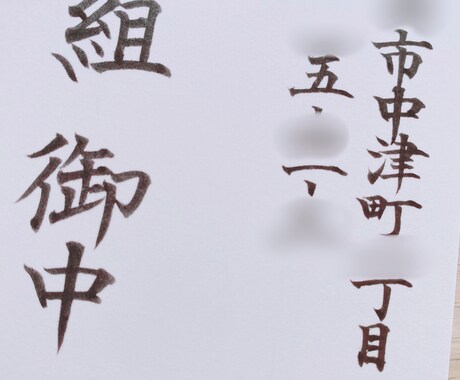 市中津町 丁目
五、一、
組 御中